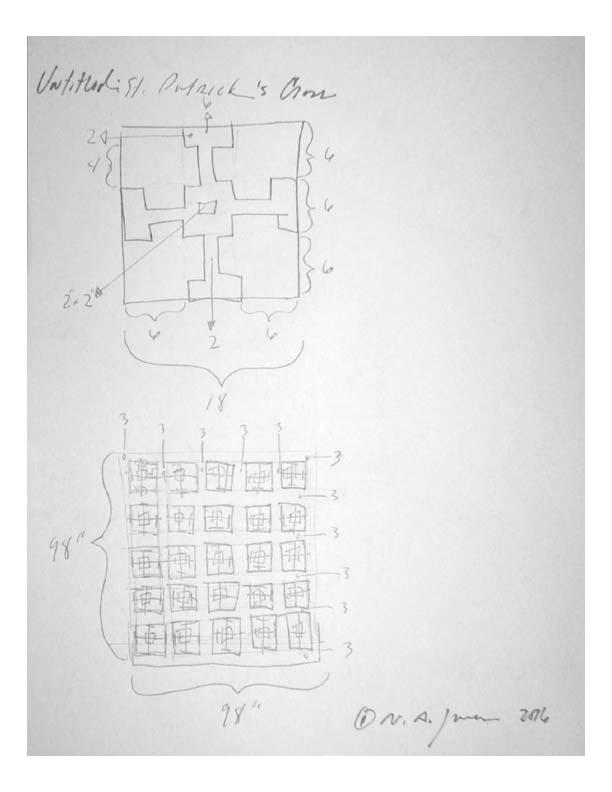 Untitled: St. Patrick's Cross
6
2
4
6
6
6
2"x2"
6
2
6
18
3
3
3
3
3
3
3
3
3
3
3
98"
98"
© N. A. 2016